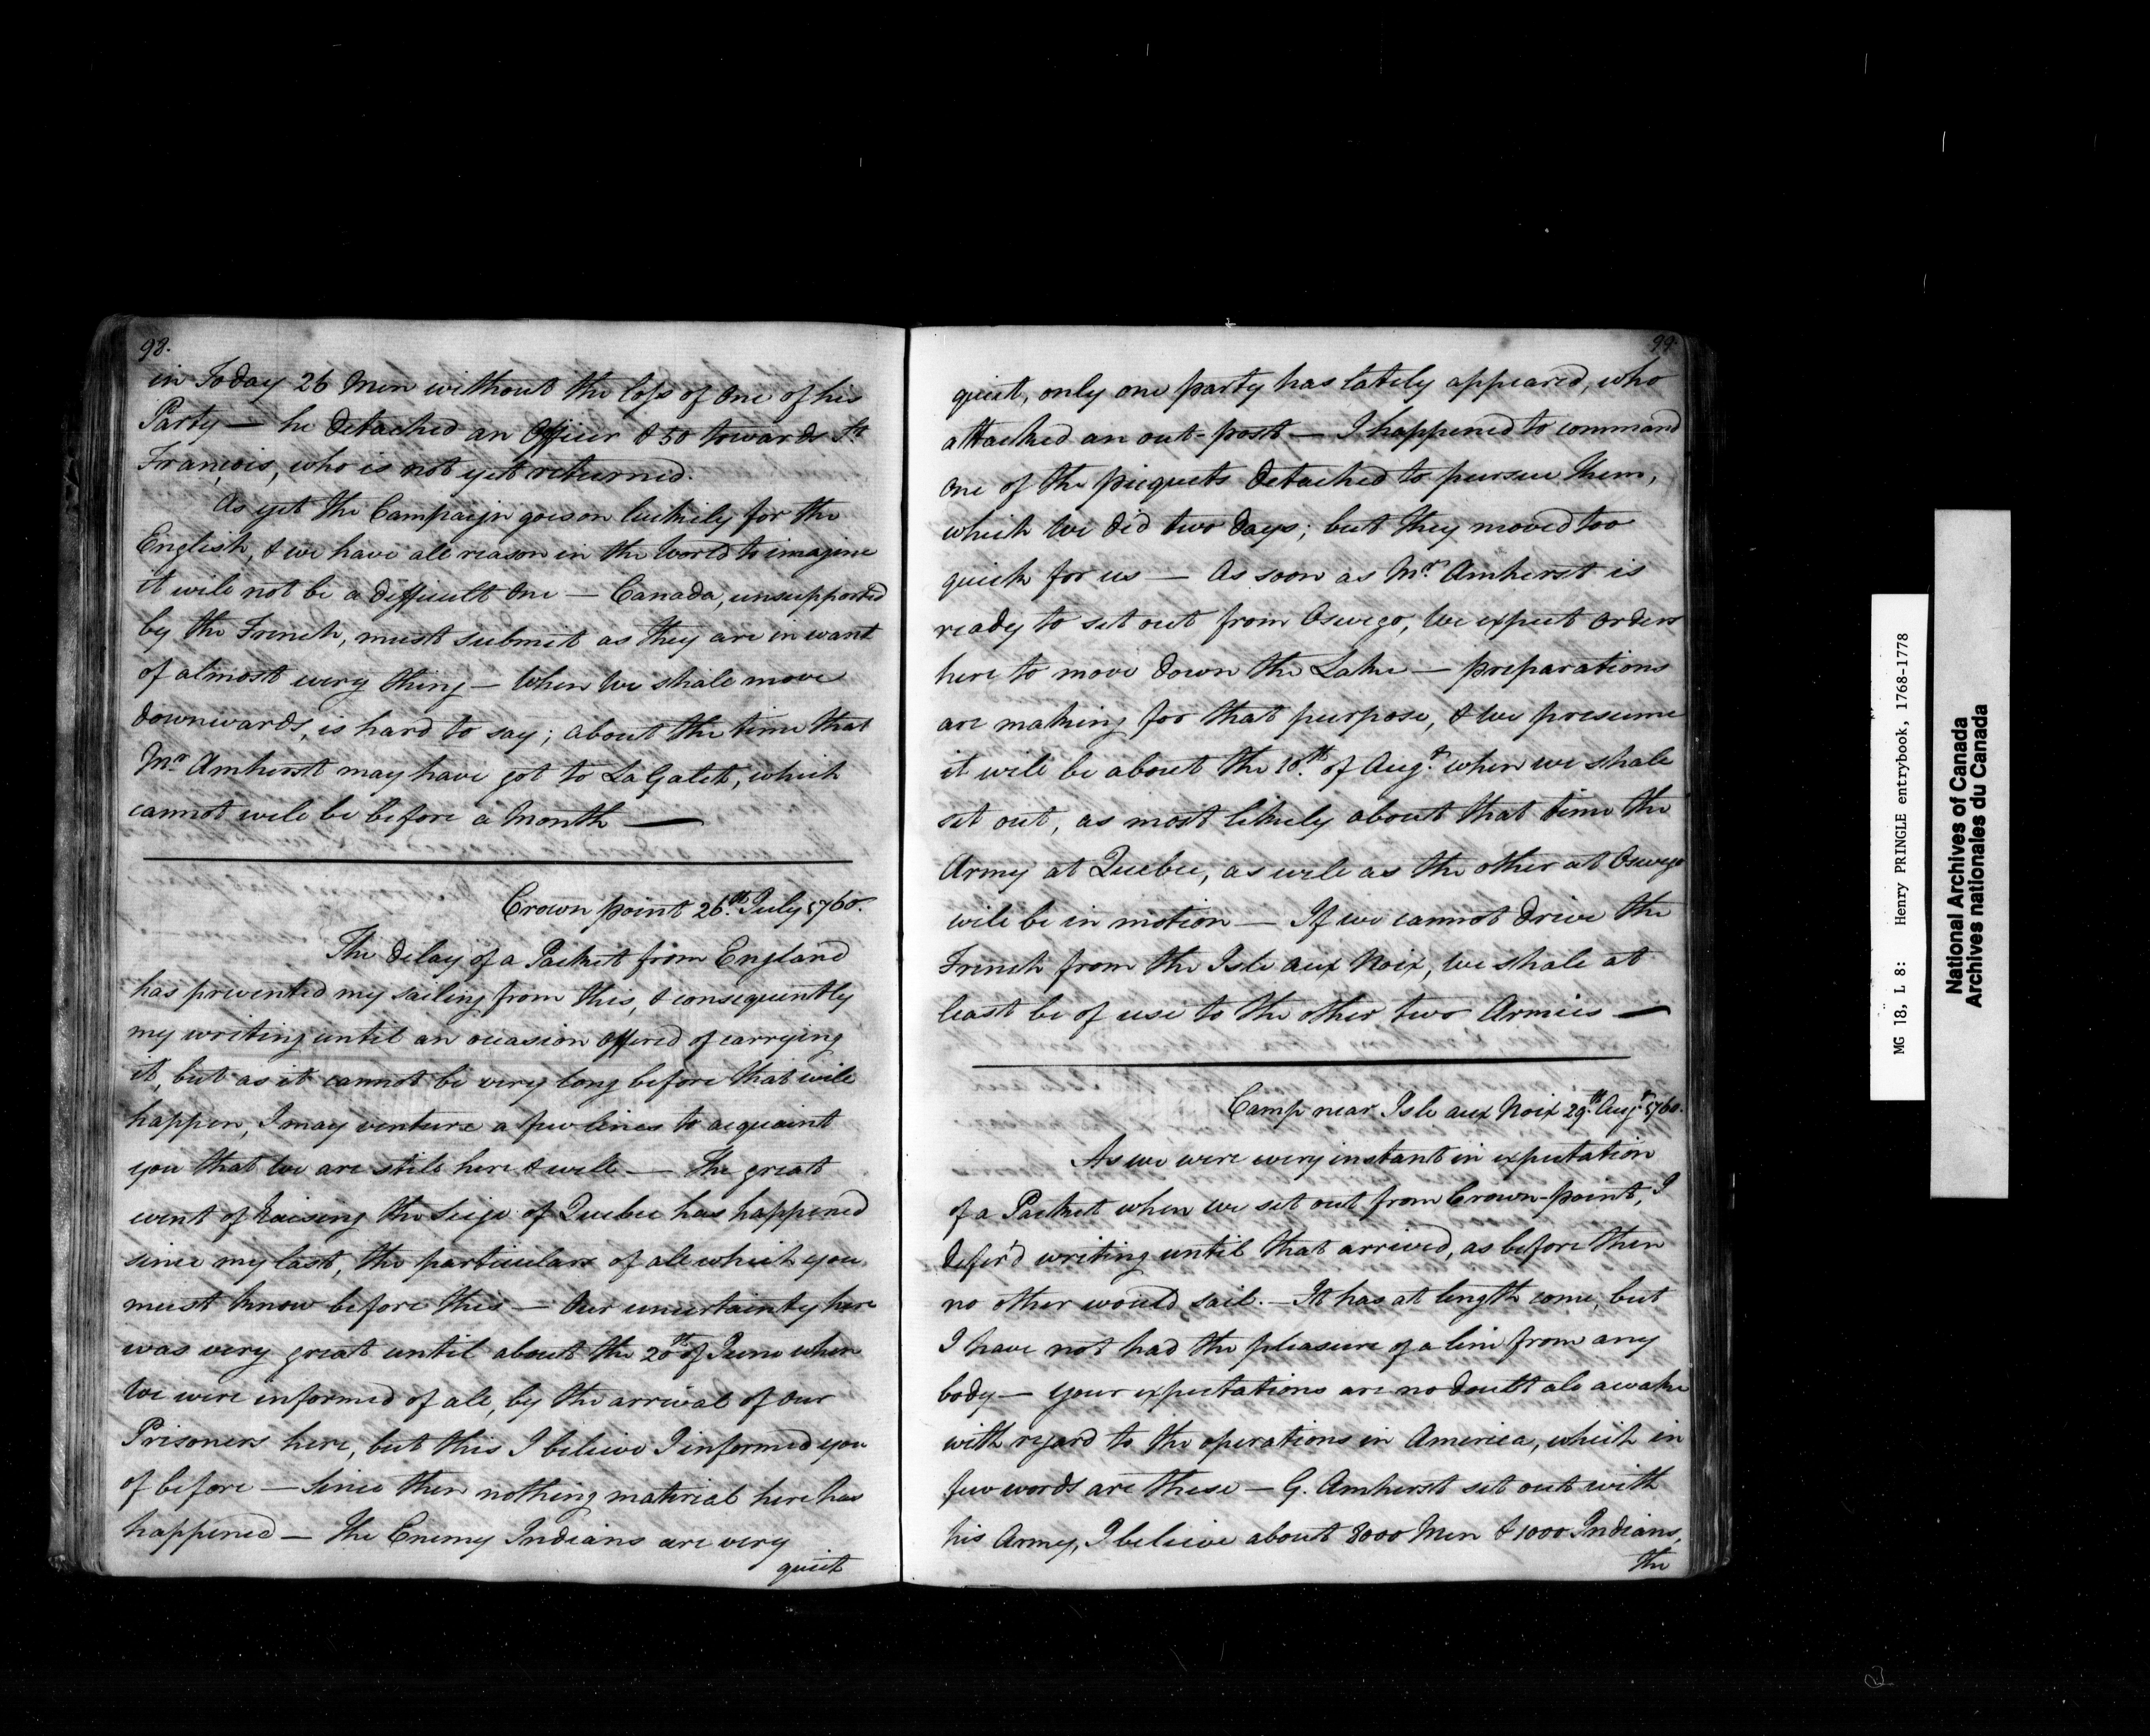 98.
in Today 26 Men without the loss of One of his
Party — he detached an Officer & 50 towards St
François, who is not yet returned.
As yet the Campaign goes on luckily for the
English, & we have all reason in the World to imagine
it will not be a difficult One — Canada, unsupported
by the French, must submit as they are in want
of almost every thing — When We shall move
downwards, is hard to say; about the time that
Mr. Amherst may have got to La Galett, which
cannot well be before a Month —
Crown point 26th July 1760.
The delay of a Packet from England
has prevented my sailing from this, & consequently
my writing until an occasion offered of carrying
it, but as it cannot be very long before that will
happen, I may venture a few lines to acquaint
you that We are still here & well — The great
event of Raising the Seige of Quebec has happened
since my last, the particulars of all which you
must know before this — Our uncertainty here
was very great until about the 20th of June when
We were informed of all, by the arrival of our
Prisoners here, but this I believe I informed you
of before — Since then nothing material here has
happened — The Enemy Indians are very
quiet
99.
quiet, only one party has lately appeared, who
attacked an out-post — I happened to command
One of the picquets detached to pursue them,
which We did two days; but they moved too
quick for us — As soon as Mr. Amherst is
ready to set out from Oswego, We expect Orders
here to move down the Lake — preparations
are making for that purpose, & We presume
it will be about the 10th of Augt. when we shall
set out, as most likely about that time the
Army at Quebec, as well as the other at Oswego
will be in motion — If we cannot drive the
French from the Isle aux Noix, We shall at
least be of use to the other two Armies —
Camp near Isle aux Noix 29th Augt. 1760.
As we were every instant in expectation
of a Packet when We set out from Crown-point, I
defer'd writing until that arrived, as before then
no other would sail. — It has at length come, but
I have not had the pleasure of a line from any
body — Your expectations are no doubt all awake
with regard to the operations in America, which in
few words are these — G. Amherst set out with
his Army, I believe about 8000 Men & 1000 Indians,
the
MG 18, L 8: Henry PRINGLE entrybook, 1768-1778
National Archives of Canada
Archives nationales du Canada